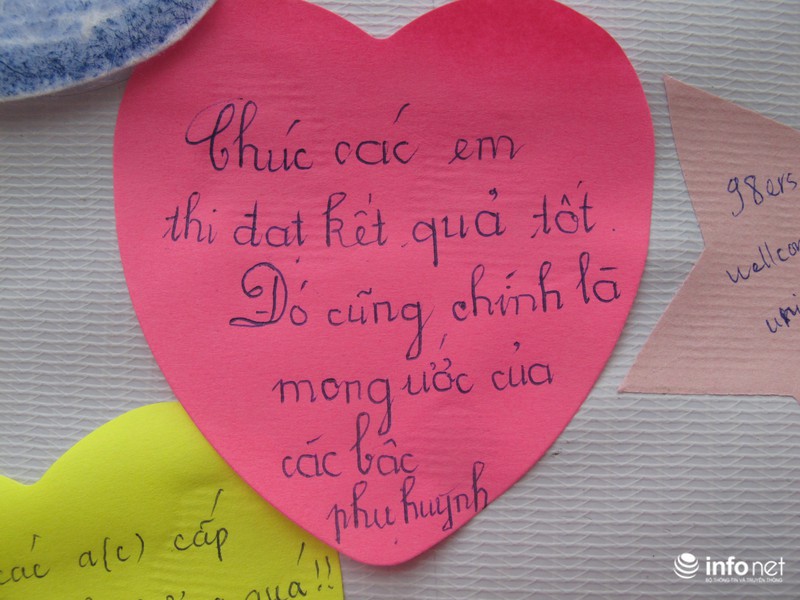 Chúc các em
thi đạt kết quả tốt.
Đó cũng chính là
mong ước của
các bậc
phụ huynh
98ers
các a(c) cấp
quá!!
infonet
BỘ THÔNG TIN VÀ TRUYỀN THÔNG